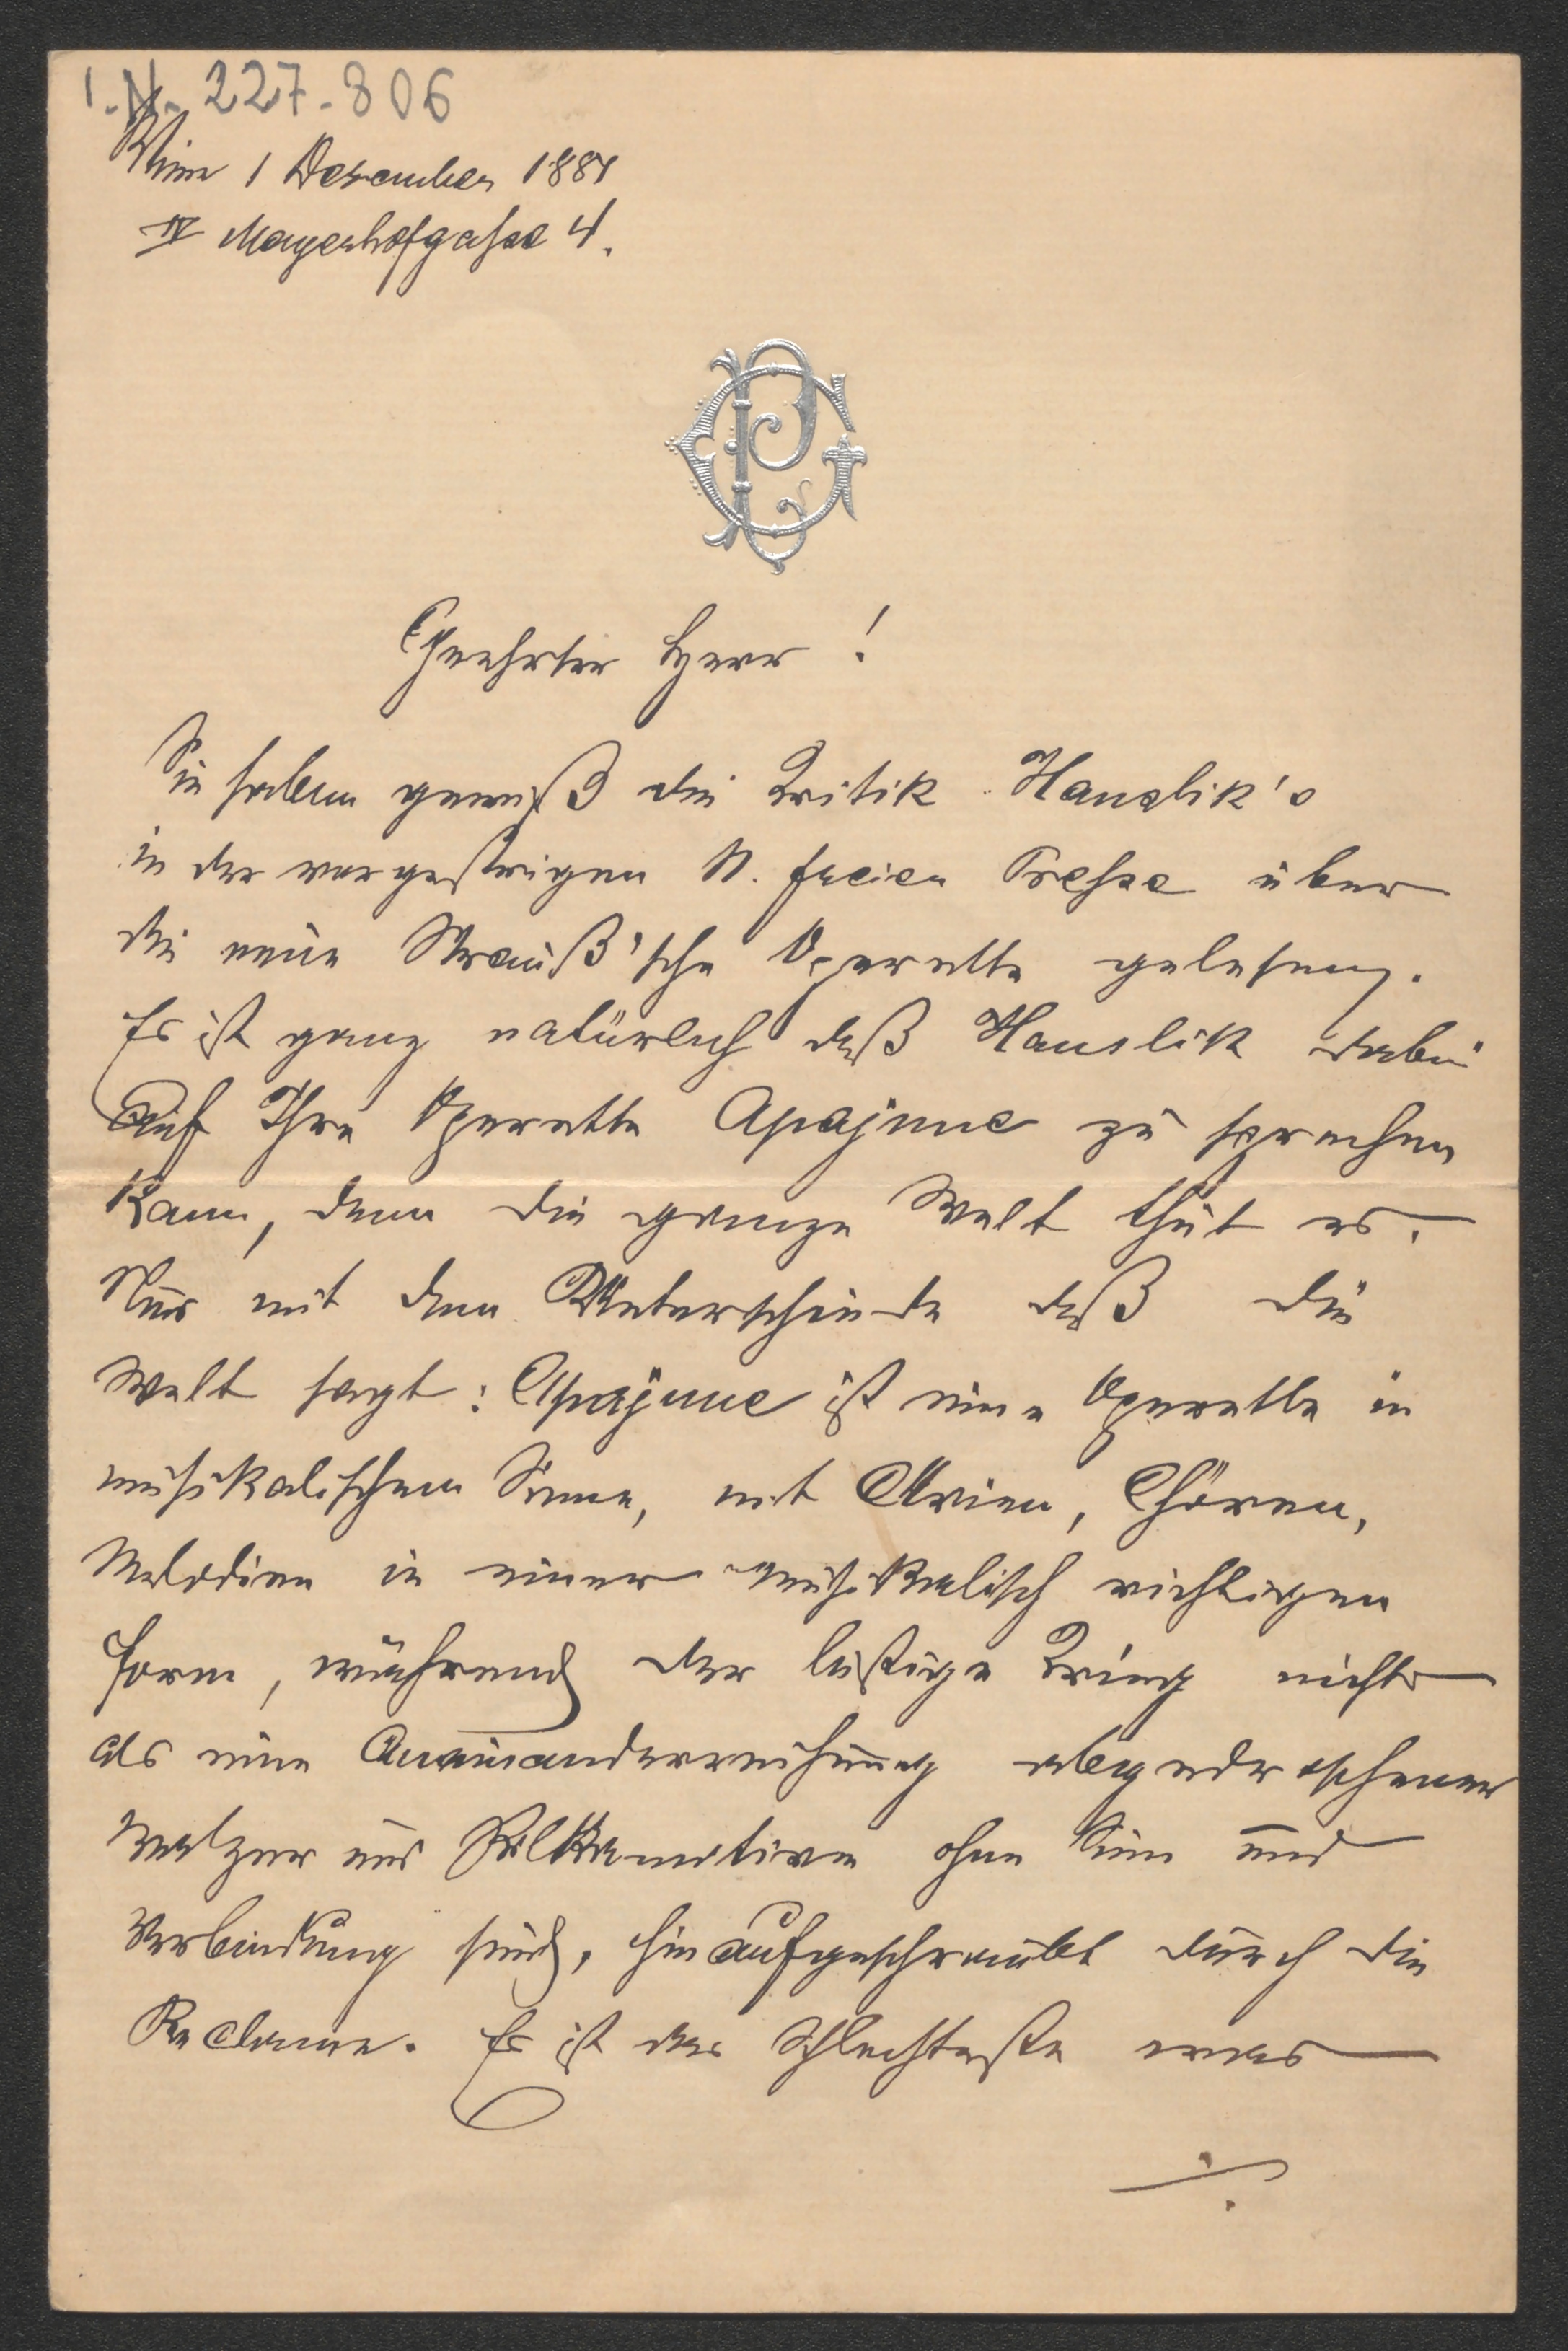 I.N. 227.806
Wien 1 Dezember 1881
IV Mayerhofgasse 4.
PG
Geehrter Herr!
Sie haben gewiß die Kritik Hanslik's
in der vorgestrigen N. freien Presse über
die neue Strauß'sche Operette gelesen.
Es ist ganz natürlich daß Hanslik dabei
auf Ihre Operette Apajune zu sprechen
kam, denn die ganze Welt thut es.
Nur mit dem Unterschiede daß die
Welt sagt: Apajune ist eine Operette in
musikalischem Sinne, mit Arien, Chören,
Melodien in einer musikalisch richtigen
Form, während der lustige Krieg nichts
als eine Aneinanderreihung abgedroschener
Walzer und Polkamotiven ohne Sinn und
Verbindung sind, hinaufgeschraubt durch die
Reclame. Es ist das Schlechteste was
./.